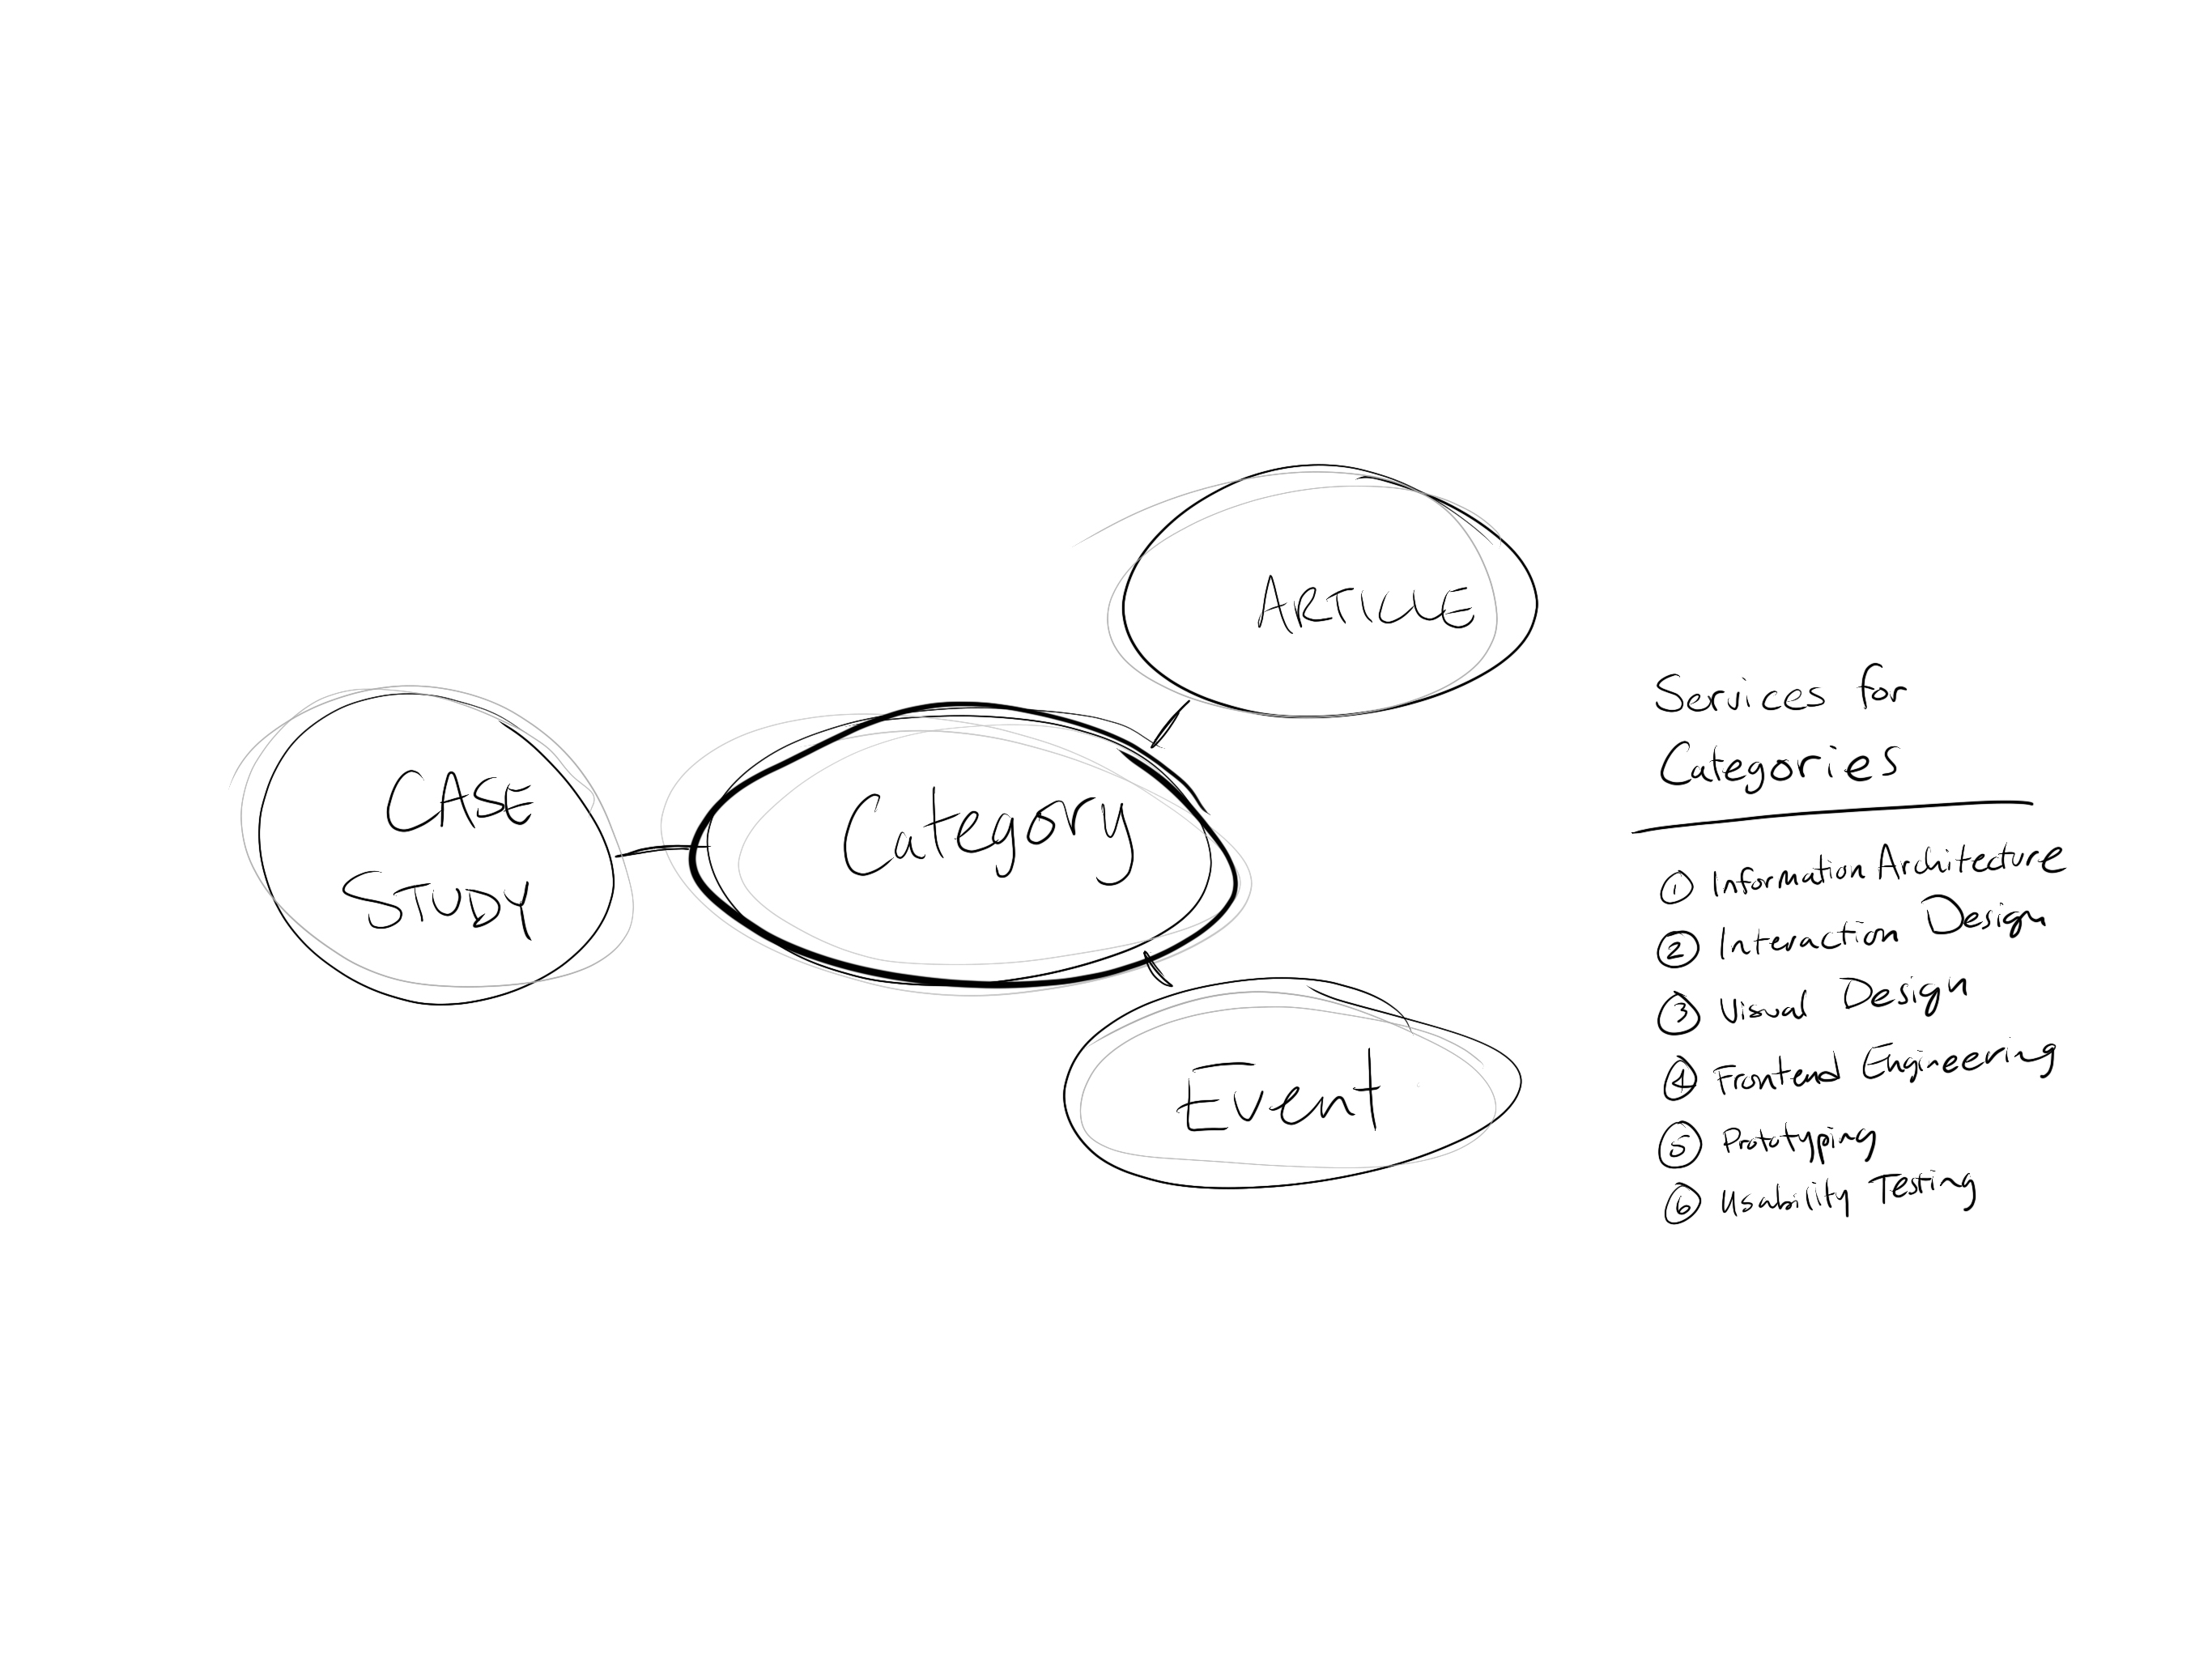 ARTICLE
CASE
STUDY
Category
Event
Services for
Categories
① Information Architecture
② Interaction Design
③ Visual Design
④ Frontend Engineering
⑤ Prototyping
⑥ Usability Testing